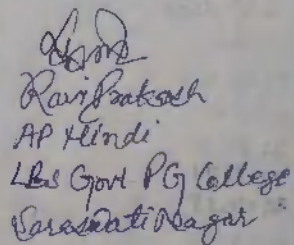 Ravi Prakash
AP Hindi
LBS Govt PG College
Saraswati Nagar